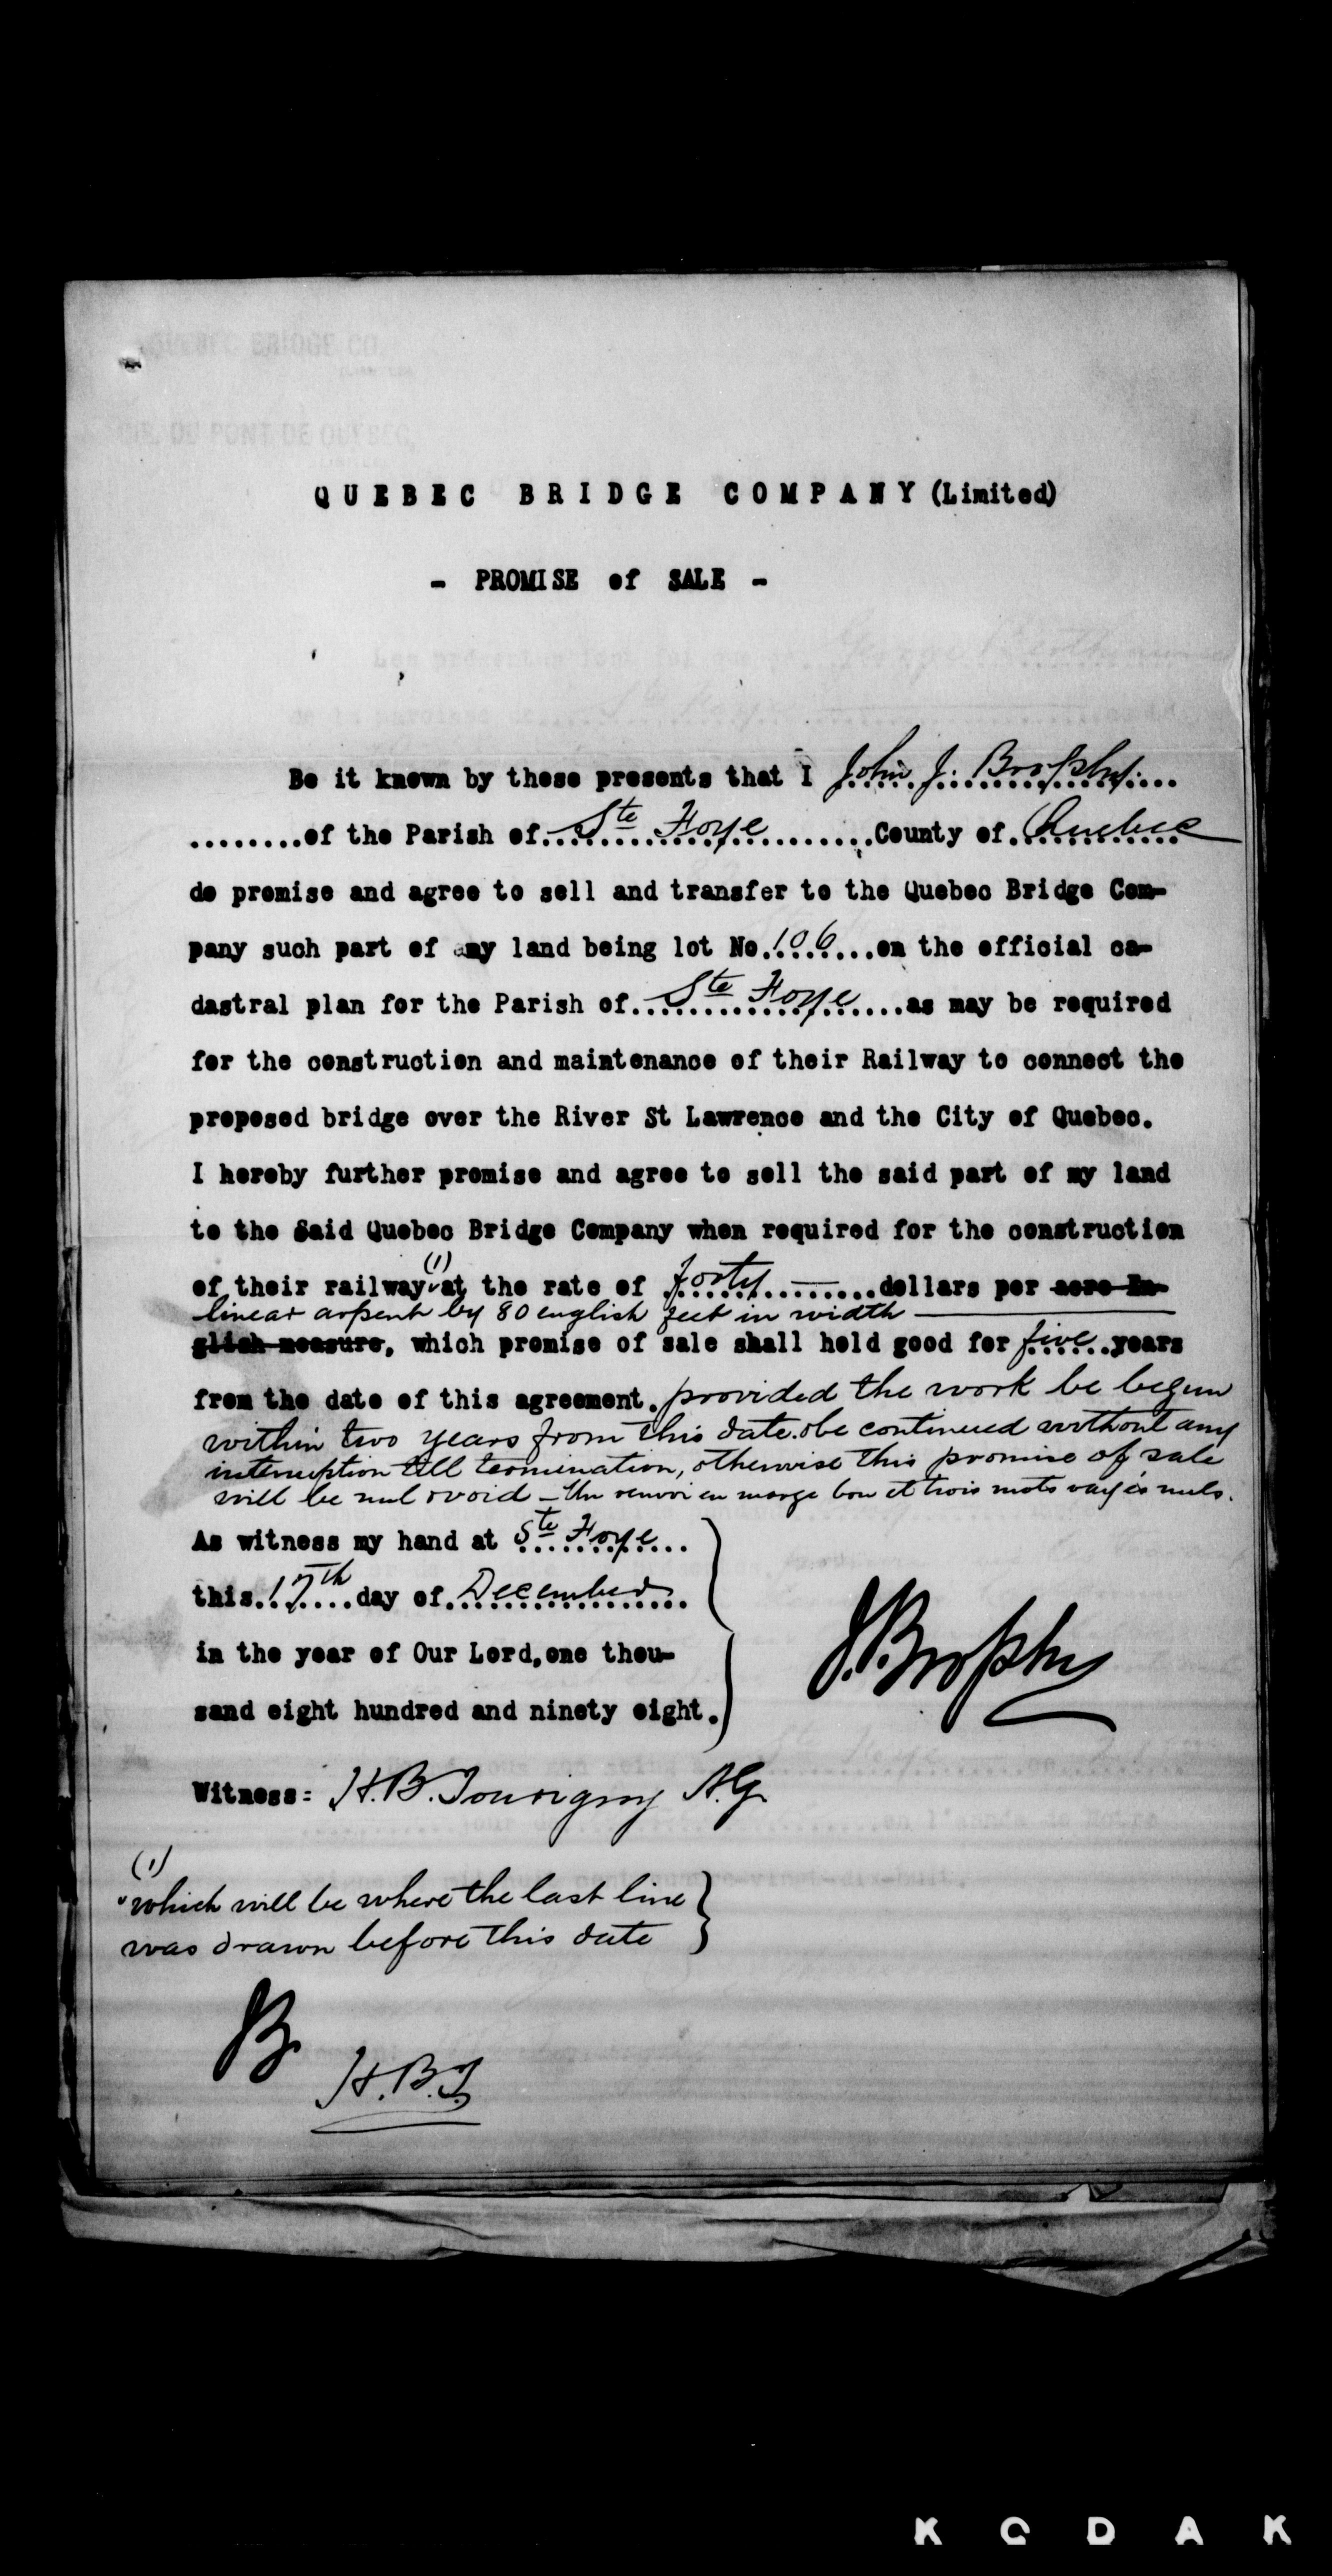 QUEBEC BRIDGE CO
CIE. DU PONT DE QUEBEC,
QUEBEC BRIDGE COMPANY (Limited)
- PROMISE of SALE -
Be it known by these presents that I John J. Brophy
........of the Parish of Ste Foye ........County of Quebec
do promise and agree to sell and transfer to the Quebec Bridge Com-
pany such part of my land being lot No. 106 ...on the official ca-
dastral plan for the Parish of Ste Foye ....as may be required
for the construction and maintenance of their Railway to connect the
proposed bridge over the River St Lawrence and the City of Quebec.
I hereby further promise and agree to sell the said part of my land
to the Said Quebec Bridge Company when required for the construction
of their railway (1) at the rate of forty ......dollars per acre En-
linear arpent by 80 english feet in width
glish measure, which promise of sale shall hold good for five years
from the date of this agreement. provided the work be begun
within two years from this date & be continued without any
interruption till termination, otherwise this promise of sale
will be nul & void - Un renvoi en marge bon et trois mots rayés nuls.
As witness my hand at Ste Foye...
this 17th day of December
in the year of Our Lord, one thou-
sand eight hundred and ninety eight.
J. Brophy
Witness: H.B. Tourigny A.G.
(1)
"which will be where the last line
was drawn before this date
JB.
H.B.T
KODAK